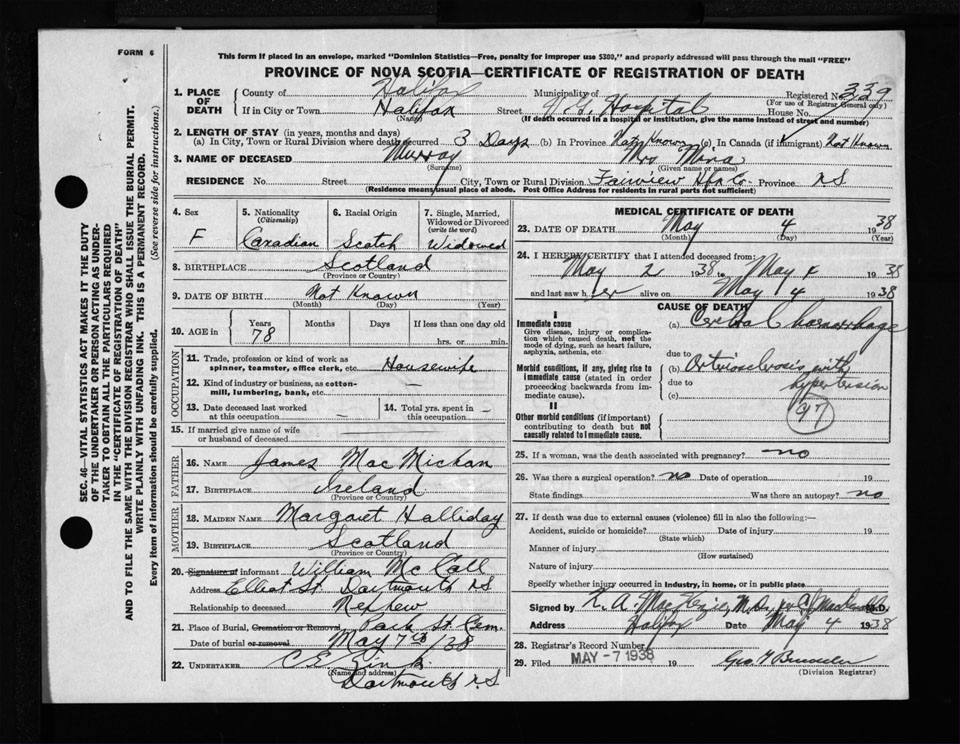 FORM 6
This form if placed in an envelope, marked "Dominion Statistics—Free, penalty for improper use $300," and properly addressed will pass through the mail "FREE"
PROVINCE OF NOVA SCOTIA—CERTIFICATE OF REGISTRATION OF DEATH
1. PLACE OF DEATH
County of Halifax Municipality of Registered No. 339
(For use of Registrar General only)
If in City or Town Halifax Street V.G. Hospital House No.
(Name) (If death occurred in a hospital or institution, give the name instead of street and number)
2. LENGTH OF STAY (in years, months and days)
(a) In City, Town or Rural Division where death occurred 3 Days (b) In Province Not Known (c) In Canada (if immigrant) Not Known
3. NAME OF DECEASED Murray Mrs Mina
(Surname) (Given name or names)
RESIDENCE No. Street City, Town or Rural Division Fairview Hfx Co. Province N.S
(Residence means usual place of abode. Post Office Address for residents in rural parts not sufficient)
4. Sex F
5. Nationality (Citizenship) Canadian
6. Racial Origin Scotch
7. Single, Married, Widowed or Divorced (write the word) Widowed
8. BIRTHPLACE Scotland
(Province or Country)
9. DATE OF BIRTH Not Known
(Month) (Day) (Year)
10. AGE in Years 78 Months Days If less than one day old
hrs. or min.
OCCUPATION
11. Trade, profession or kind of work as spinner, teamster, office clerk, etc. Housewife
12. Kind of industry or business, as cotton-mill, lumbering, bank, etc. —
13. Date deceased last worked at this occupation —
14. Total yrs. spent in this occupation —
15. If married give name of wife or husband of deceased
FATHER
16. NAME James MacMichan
17. BIRTHPLACE Ireland
(Province or Country)
MOTHER
18. MAIDEN NAME Margaret Halliday
19. BIRTHPLACE Scotland
(Province or Country)
20. Signature of informant William McCall
Address Elliot St Dartmouth N.S
Relationship to deceased Nephew
21. Place of Burial, Cremation or Removal Park St. Cem.
Date of burial or removal May 7th/38
22. UNDERTAKER C E
(Name and address)
Dartmouth N.S
MEDICAL CERTIFICATE OF DEATH
23. DATE OF DEATH May 4 1938
(Month) (Day) (Year)
24. I HEREBY CERTIFY that I attended deceased from:
May 2 1938 to May 4 1938
and last saw her alive on May 4 1938
CAUSE OF DEATH
I
Immediate cause
Give disease, injury or complication which caused death, not the mode of dying, such as heart failure, asphyxia, asthenia, etc.
(a) Cerebral haemorrhage
Morbid conditions, if any, giving rise to immediate cause (stated in order proceeding backwards from immediate cause).
due to
(b) Arteriosclerosis with
due to hypertension
(c)
97
II
Other morbid conditions (if important) contributing to death but not causally related to immediate cause.
25. If a woman, was the death associated with pregnancy? no
26. Was there a surgical operation? no Date of operation 19
State findings Was there an autopsy? no
27. If death was due to external causes (violence) fill in also the following:—
Accident, suicide or homicide? Date of injury 19
(State which)
Manner of injury
(How sustained)
Nature of injury
Specify whether injury occurred in industry, in home, or in public place
Signed by K. A. MacKenzie M.D. per M.D.
Address Halifax Date May 4 1938
28. Registrar's Record Number
29. Filed MAY -7 1938 19 Geo
(Division Registrar)
SEC. 46—VITAL STATISTICS ACT MAKES IT THE DUTY
OF THE UNDERTAKER OR PERSON ACTING AS UNDER-
TAKER TO OBTAIN ALL THE PARTICULARS REQUIRED
IN THE "CERTIFICATE OF REGISTRATION OF DEATH"
AND TO FILE THE SAME WITH THE DIVISION REGISTRAR WHO SHALL ISSUE THE BURIAL PERMIT.
WRITE PLAINLY WITH UNFADING INK. THIS IS A PERMANENT RECORD.
Every item of information should be carefully supplied. (See reverse side for instructions.)